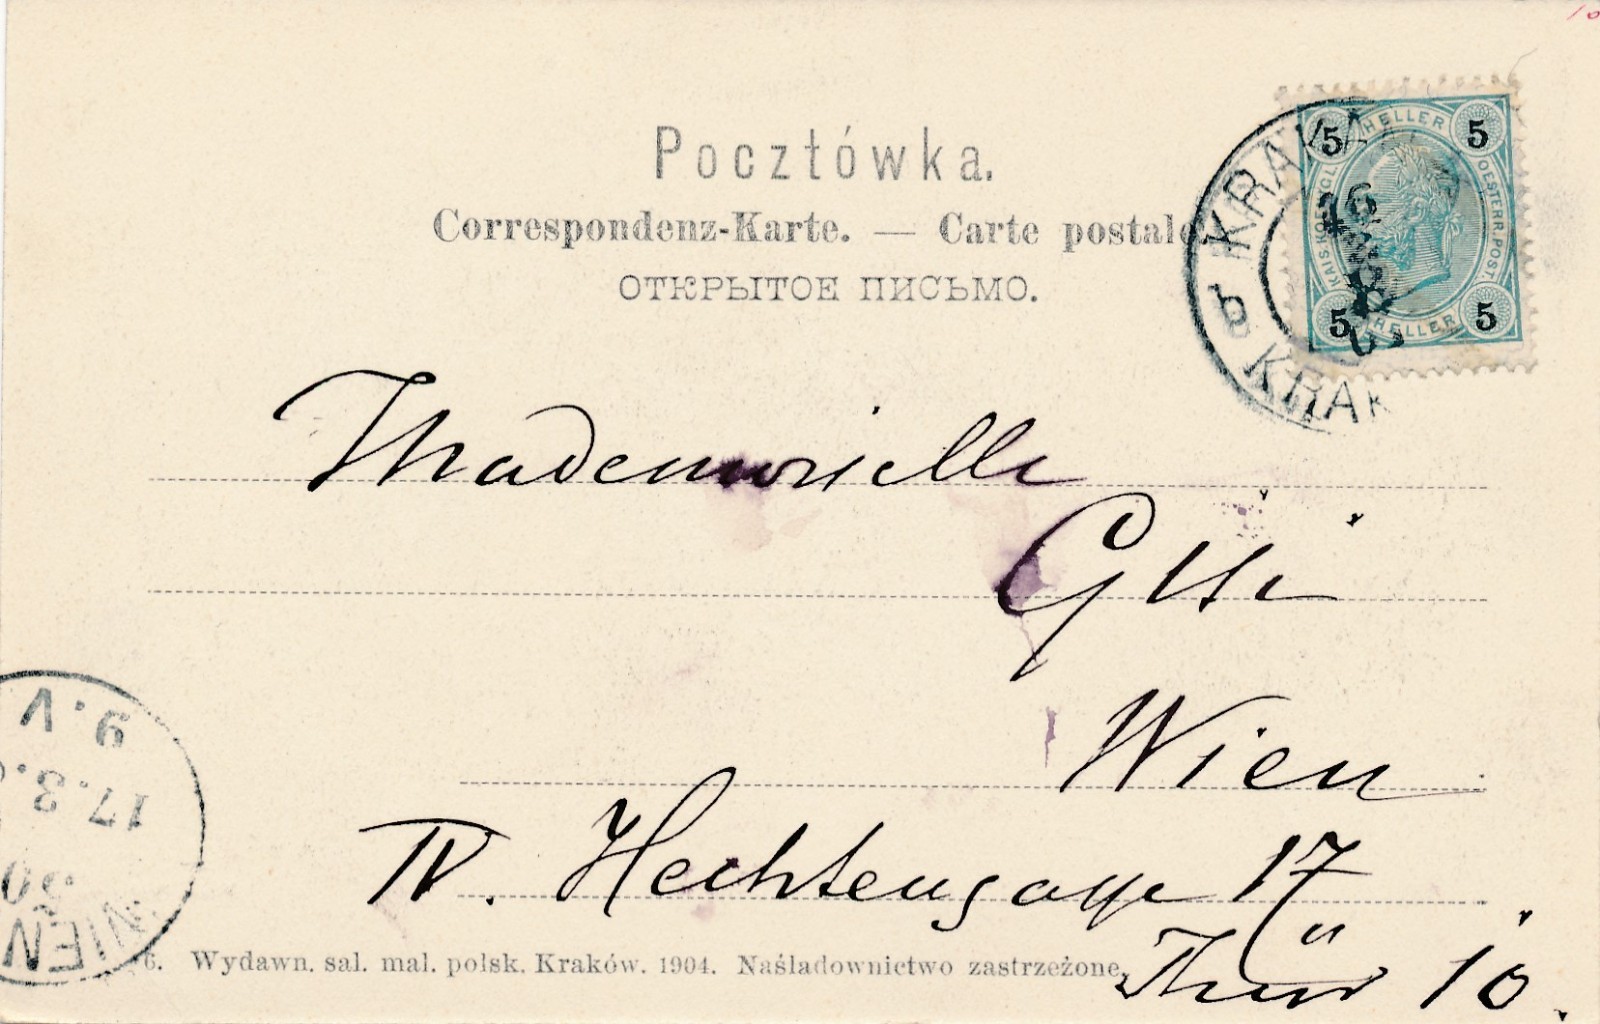 10
Pocztówka.
Correspondenz-Karte. — Carte postale
ОТКРЫТОЕ ПИСЬМО.
5 HELLER 5
KAIS. KOENIGL. OESTERR. POST.
5 HELLER 5
KRA
16
b
KRAK
Mademoiselle
Gisi
Wien
IV. Hechtengasse 17
Thür 10.
9.V
17.3.
30
WIEN
6. Wydawn. sal. mal. polsk. Kraków. 1904. Naśladownictwo zastrzeżone.